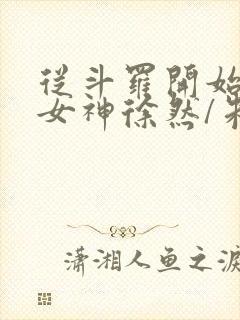 從斗羅開始
女神徐然/朱
瀟湘人鱼之淚